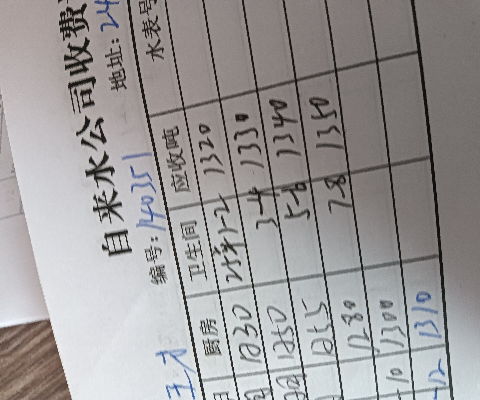 自来水公司收费
编号:140351 地址:24
厨房 卫生间 应收吨 水表号
1230 25年1-2 1320
1250 3-4 1330
1255 5-6 1340
1280 7-8 1350
-10 1300
-12 1310